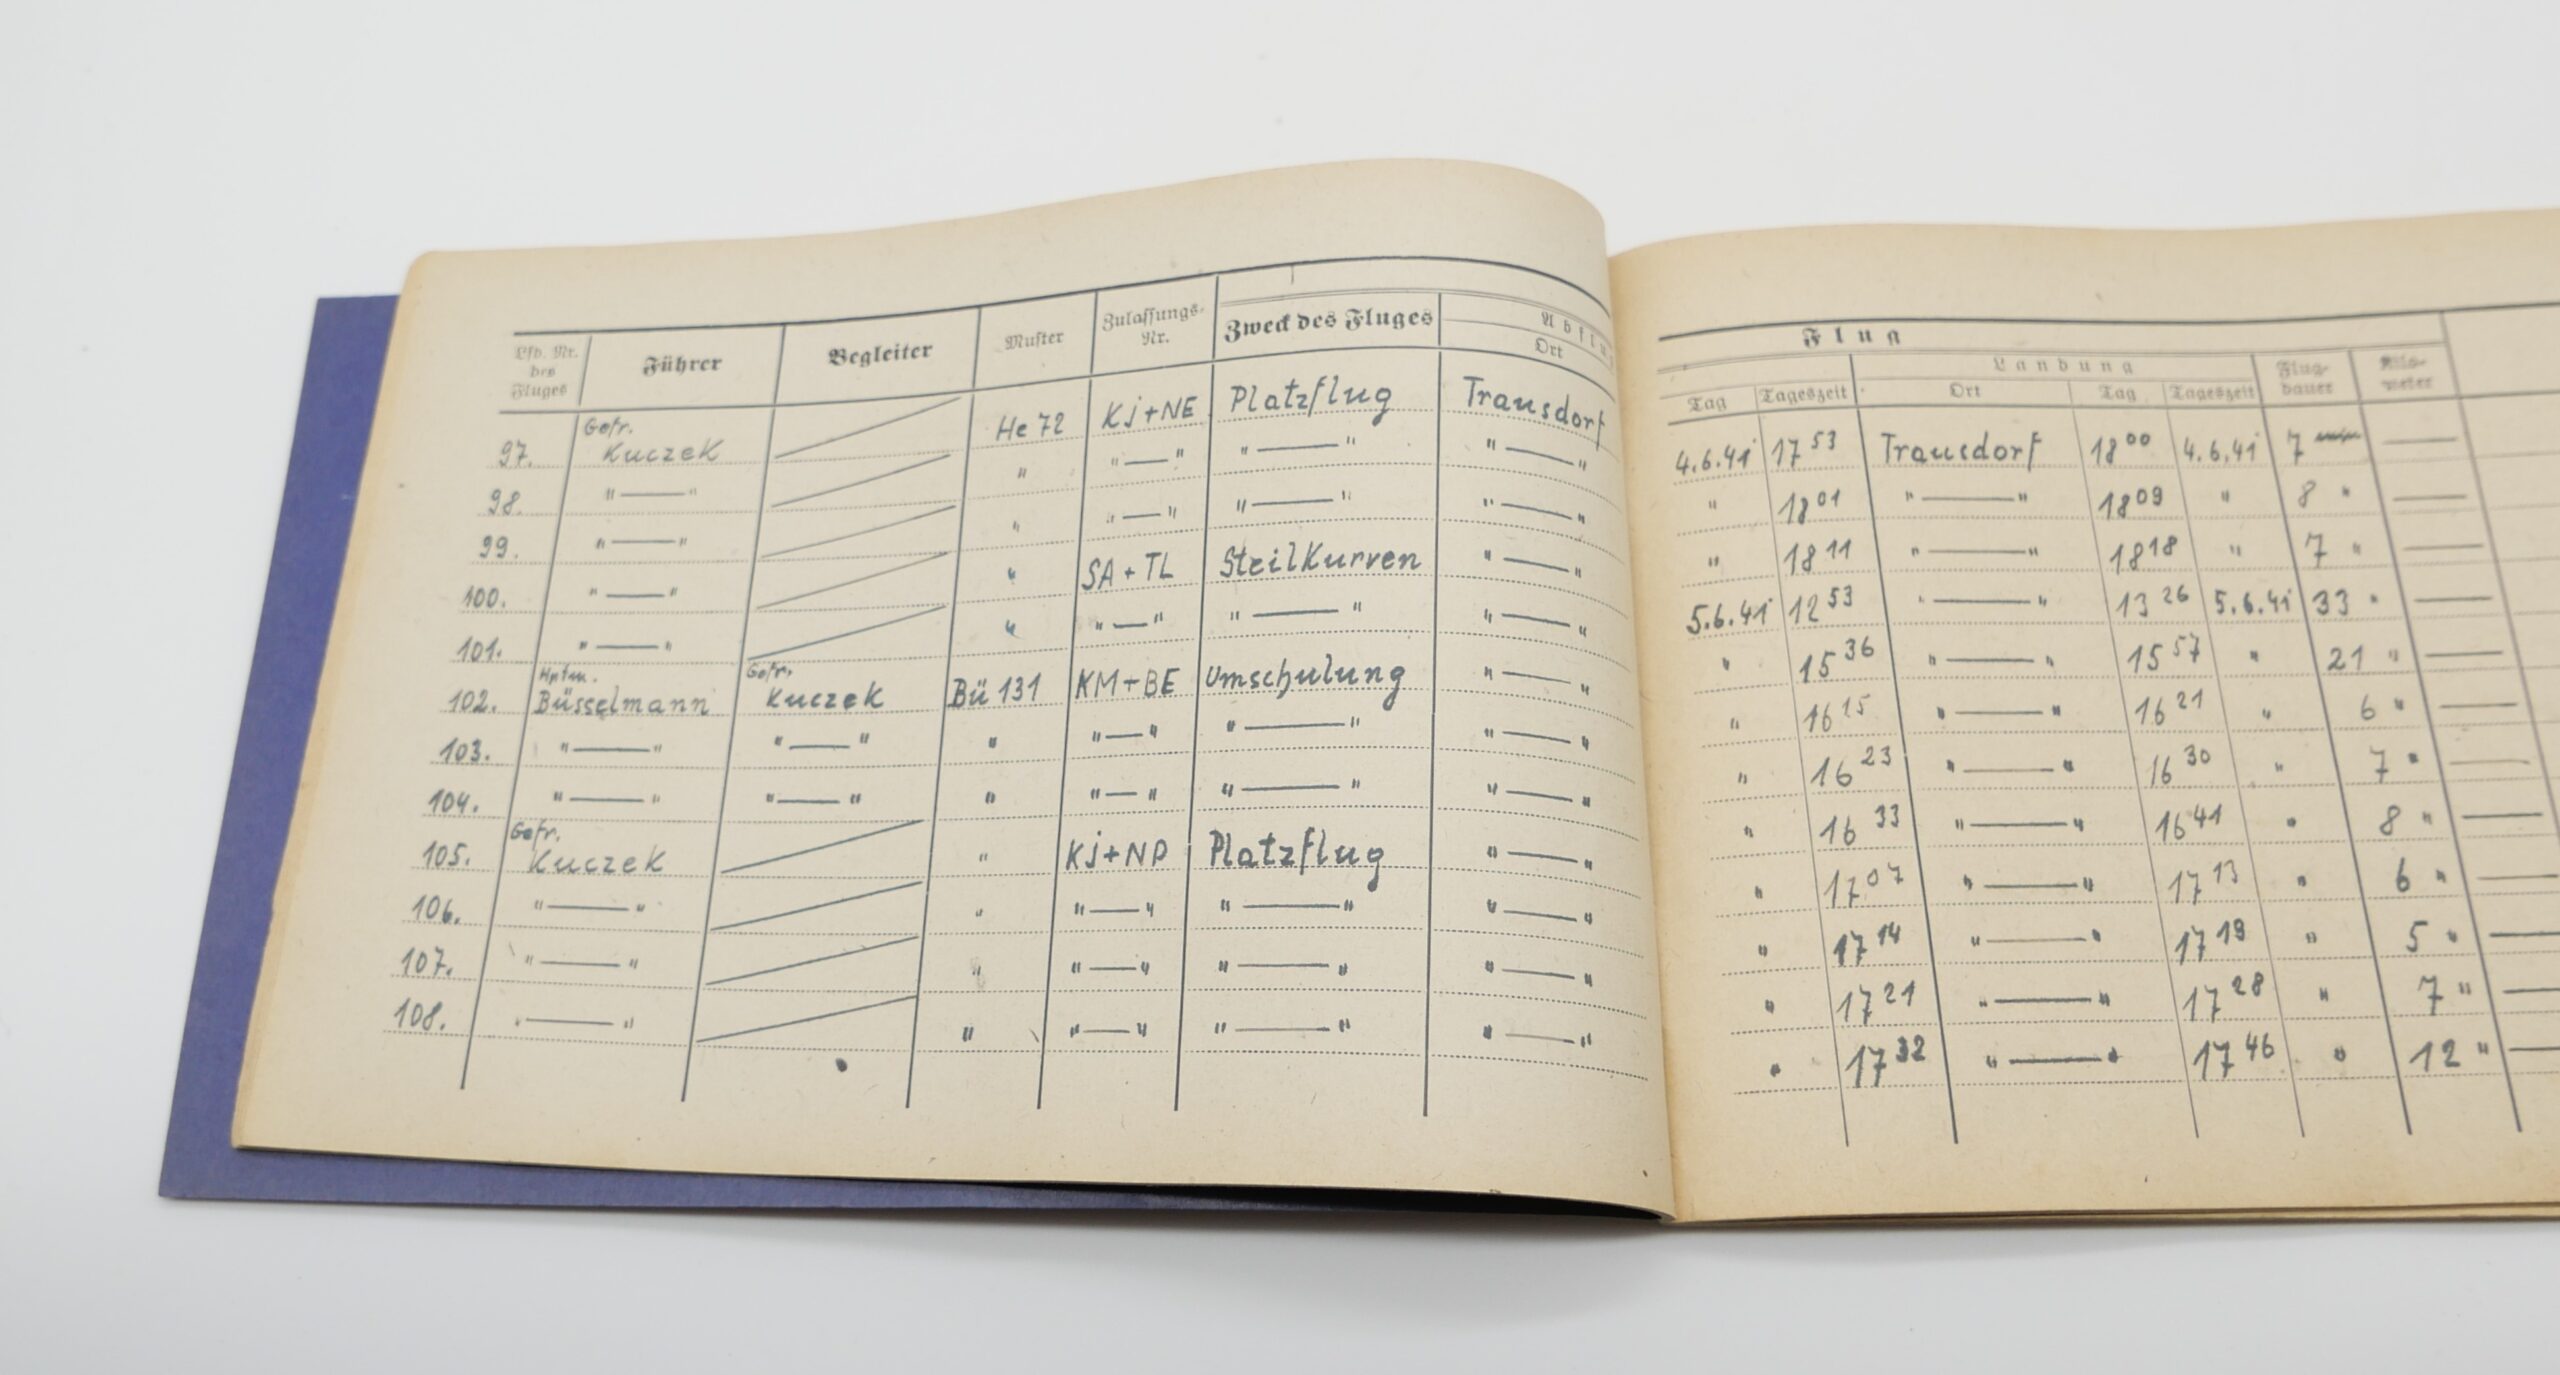 Lfd. Nr. des Fluges Führer Begleiter Muster Zulassungs-Nr. Zweck des Fluges Abflu
Ort
97. Gefr. Kuczek He 72 KJ+NE Platzflug Trausdorf
98. " — " " " — " " — " " — "
99. " — " " " — " " — " " — "
100. " — " " SA + TL Steilkurven " — "
101. " — " " " — " " — " " — "
102. Hptm. Büsselmann Gefr. Kuczek Bü 131 KM+BE Umschulung " — "
103. " — " " — " " " — " " — " " — "
104. " — " " — " " " — " " — " " — "
105. Gefr. Kuczek " KJ+ND Platzflug " — "
106. " — " " " — " " — " " — "
107. " — " " " — " " — " " — "
108. " — " " " — " " — " " — "
Flug
Landung Flug-dauer Kilo-meter
Tag Tageszeit Ort Tag Tageszeit
4.6.41 17 53 Trausdorf 18 00 4.6.41 7 —
" 18 01 " — " 18 09 " 8 " —
" 18 11 " — " 18 18 " 7 " —
5.6.41 12 53 " — " 13 26 5.6.41 33 " —
" 15 36 " — " 15 57 " 21 " —
" 16 15 " — " 16 21 " 6 " —
" 16 23 " — " 16 30 " 7 " —
" 16 33 " — " 16 41 " 8 " —
" 17 07 " — " 17 13 " 6 " —
" 17 14 " — " 17 19 " 5 " —
" 17 21 " — " 17 28 " 7 " —
" 17 32 " — " 17 46 " 12 " —